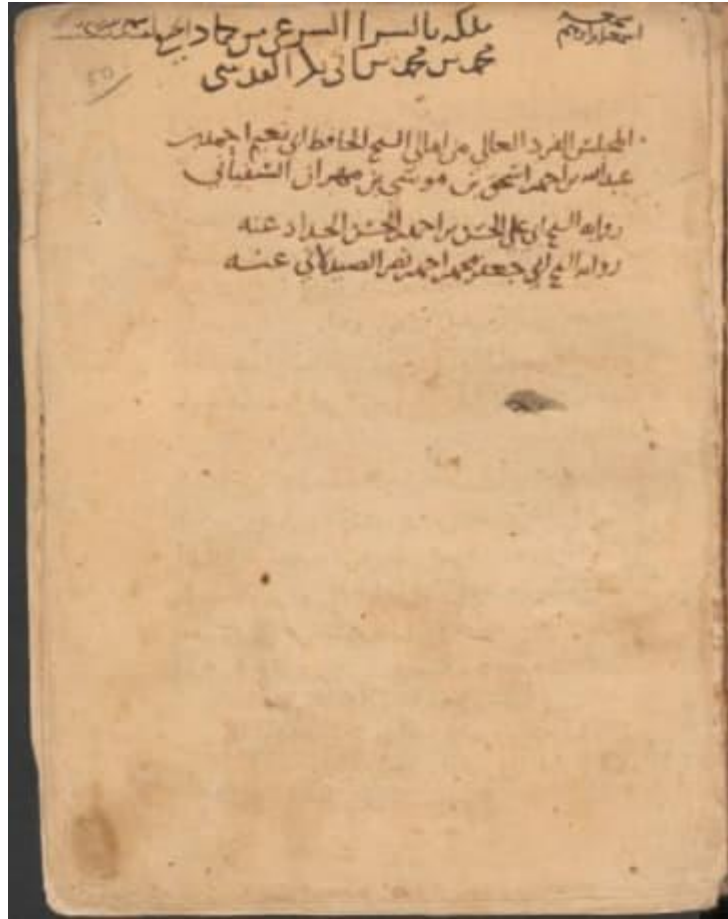 سمعه
اسمعيل ابرهيم
ملكه بالشرا الشرعي من حماد
محمد بن محمد بن القدسي
المجلس الفرد العالي من امالي الشيخ الحافظ ابي نعيم احمد بن
عبدالله بن احمد بن اسحق بن موسى بن مهران الشيباني
روايه الشيخ ابي علي الحسن بن احمد بن الحسن الحداد عنه
روايه الشيخ ابي جعفر محمد بن احمد بن نصر الصيدلاني عنه